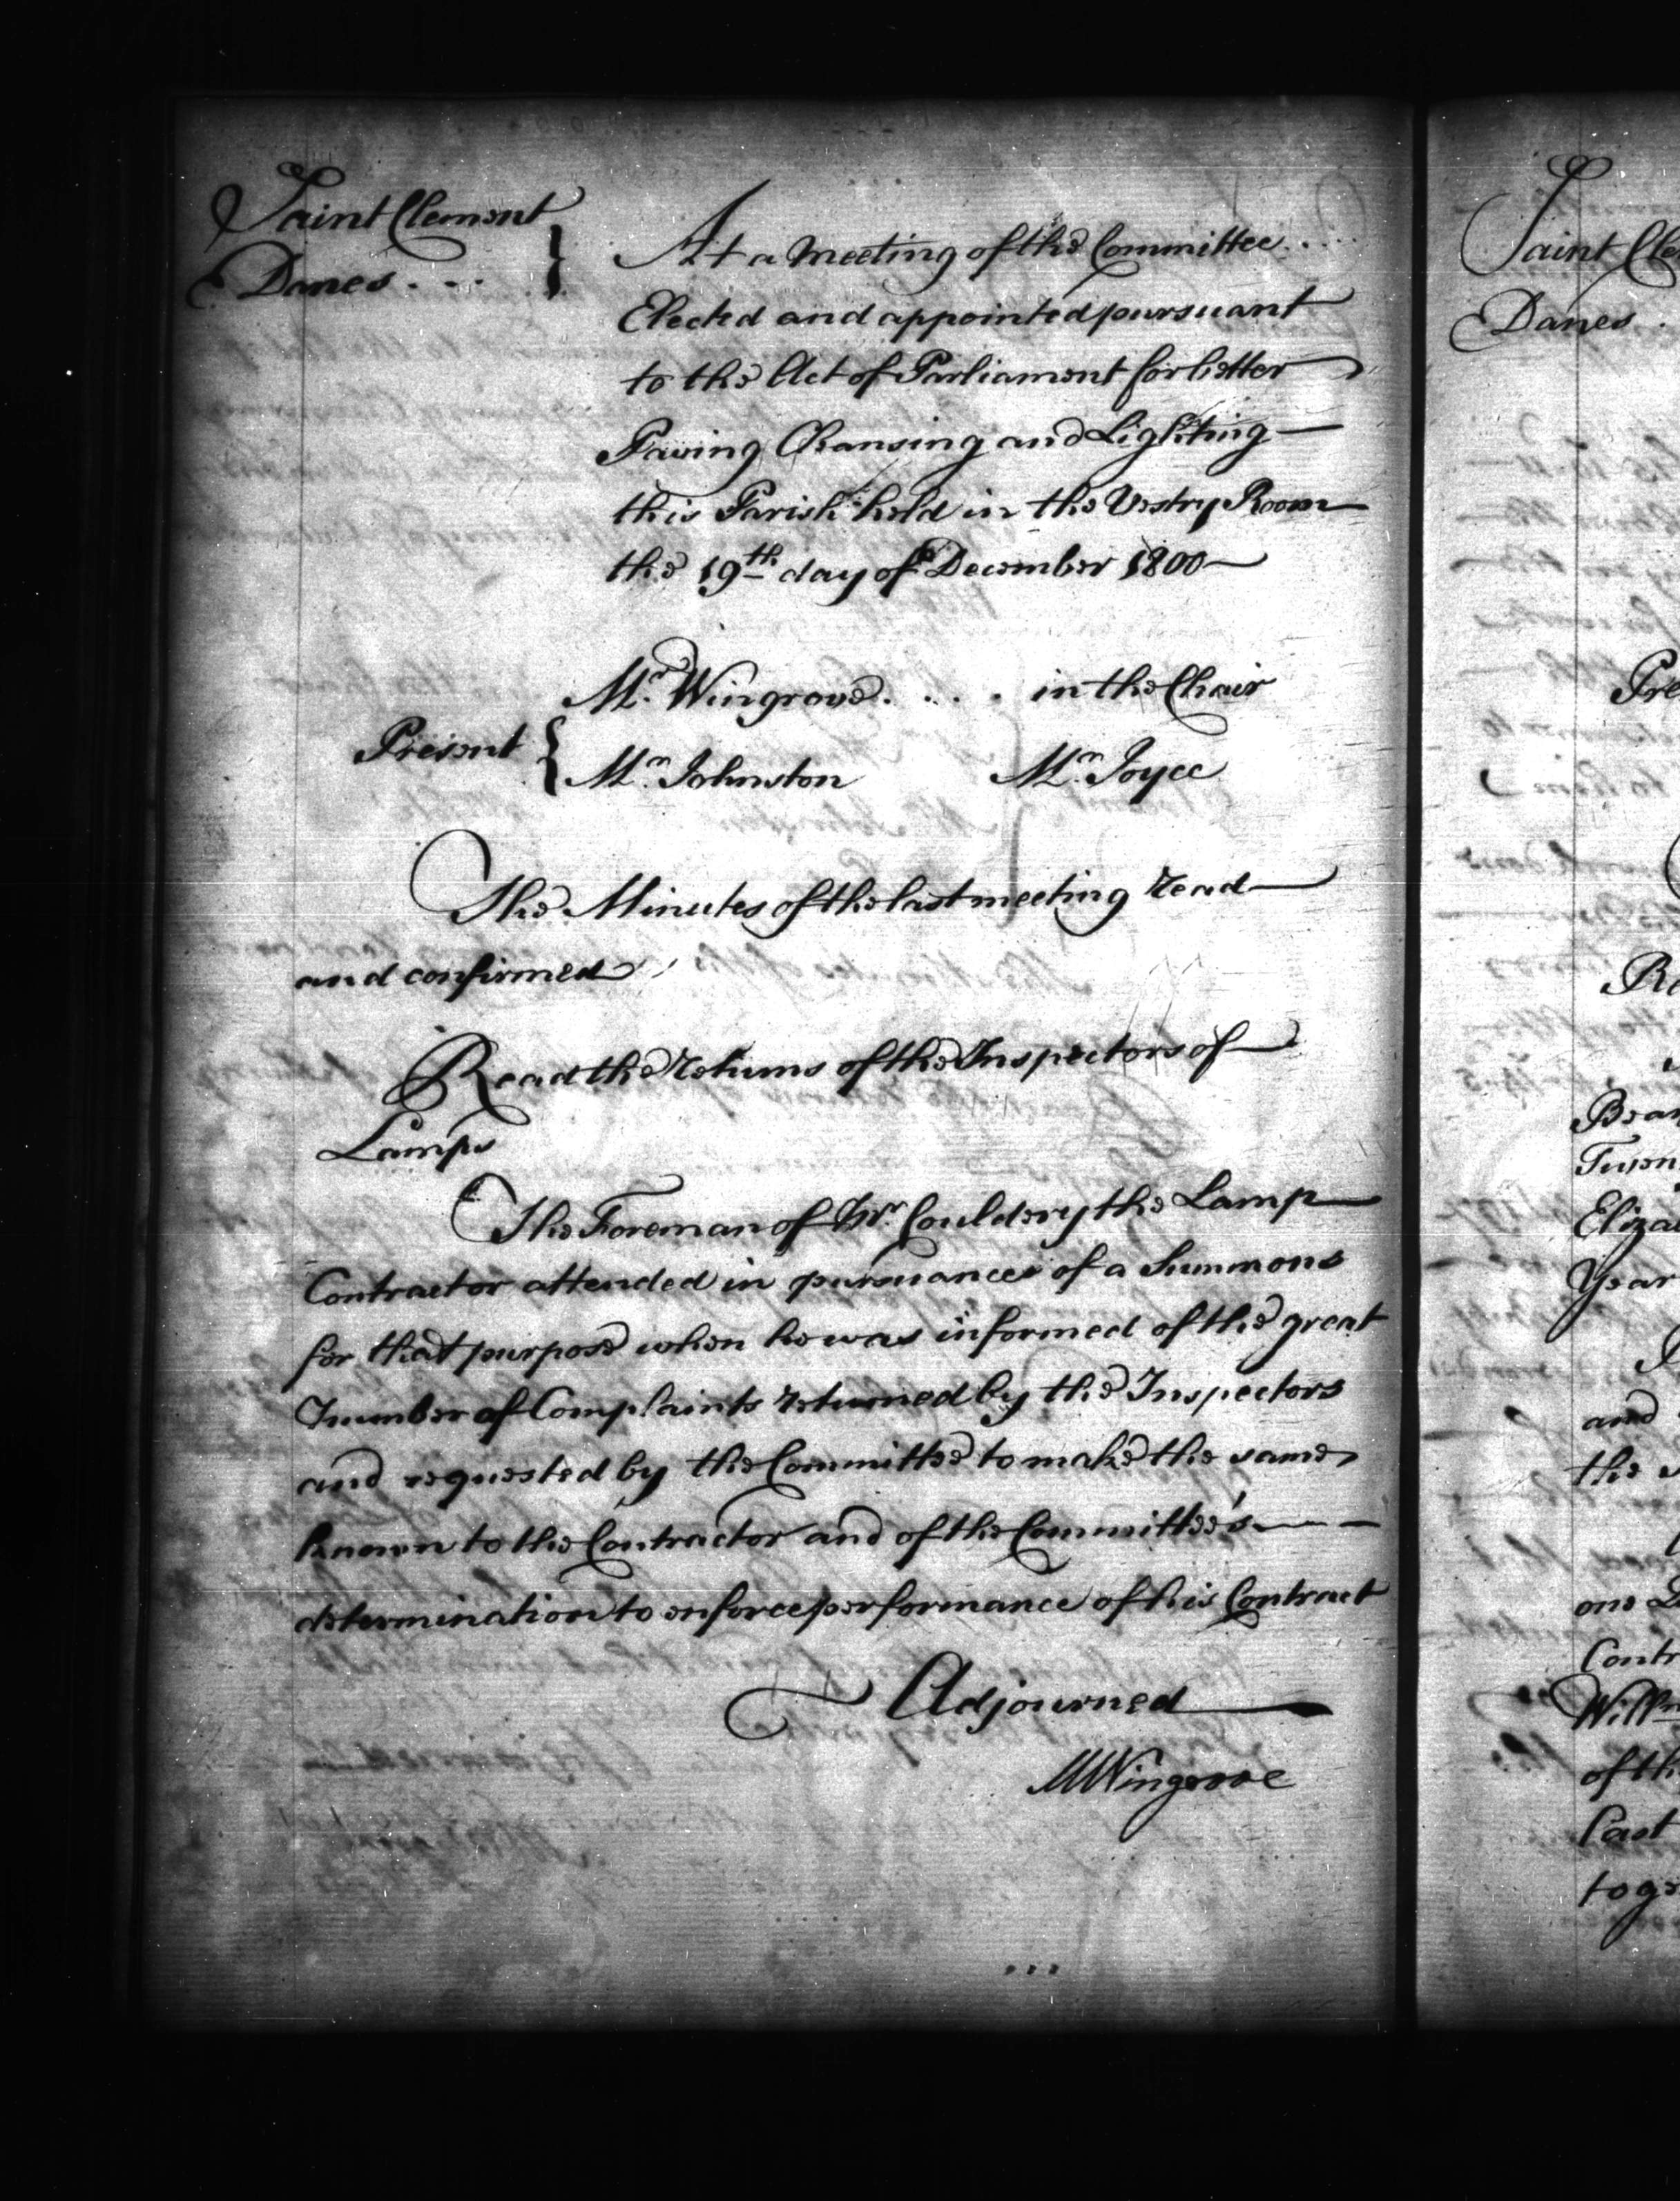 Saint Clement
Danes . . . }
At a Meeting of the Committee . . .
Elected and appointed pursuant
to the Act of Parliament for better
Paving Cleansing and Lighting —
this Parish held in the Vestry Room
the 19th day of December 1800 —
Mr. Wingrove . . . . in the Chair
Present {
Mr. Johnston Mr. Joyce
The Minutes of the last meeting read —
and confirmed
Read the returns of the Inspectors of —
Lamps
The Foreman of Mr. Couldery the Lamp —
Contractor attended in pursuance of a Summons
for that purpose when he was informed of the great
Number of Complaints returned by the Inspectors
and requested by the Committee to make the same
known to the Contractor and of the Committee's — —
determination to enforce performance of his Contract
Adjourned
MWingrove
Saint Cle
Danes .
Pre
Re
Bea
Eliza
Year
and
the s
one L
Contr
Willm
of the
Cast
toge